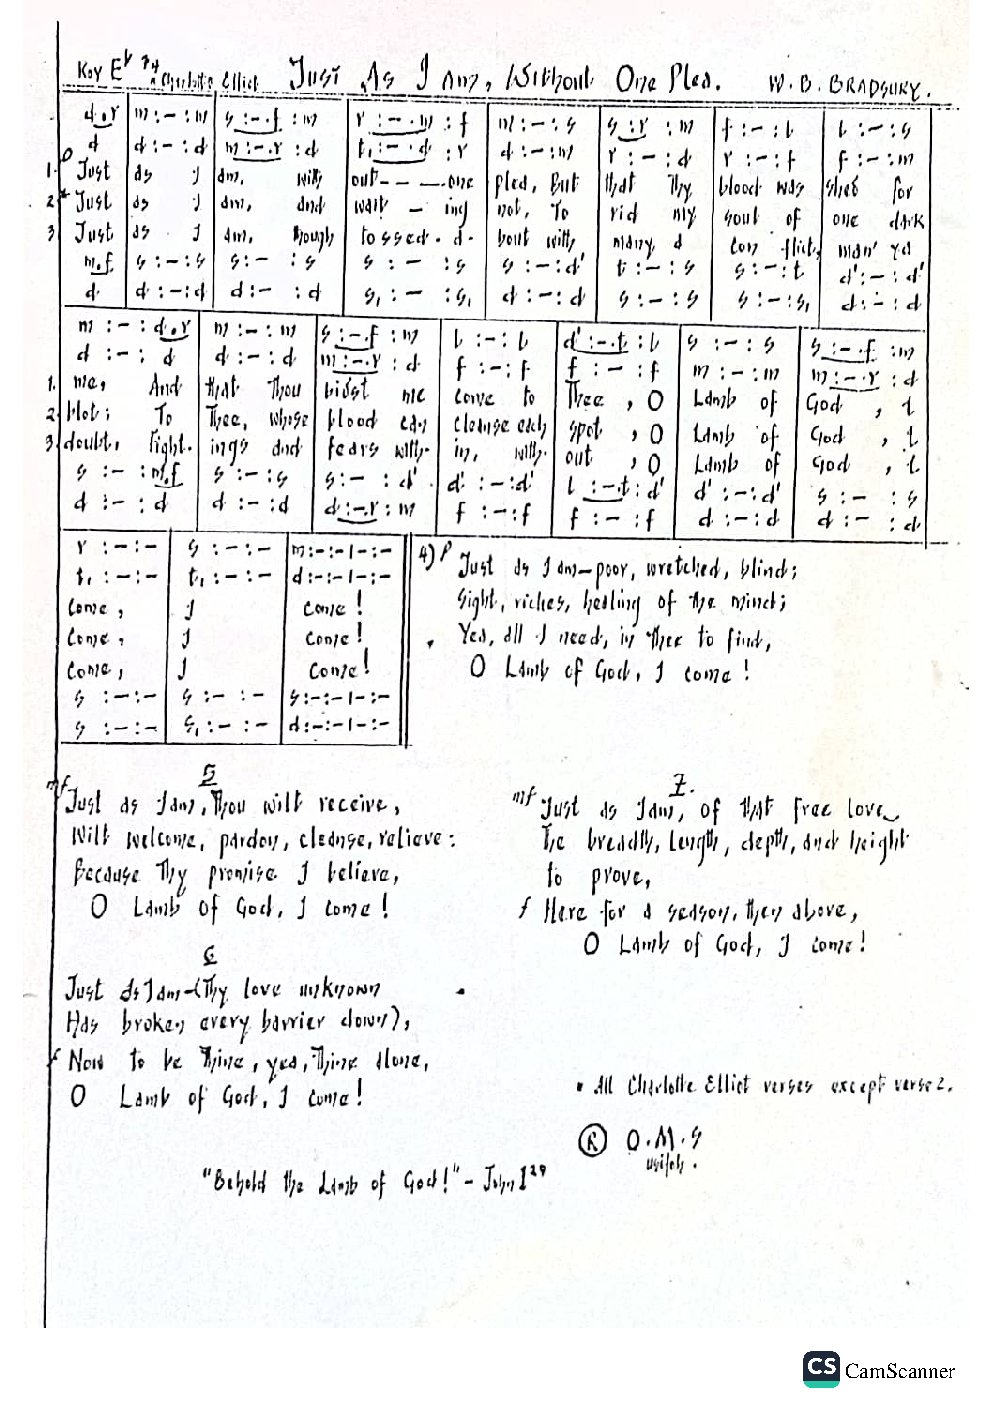 Key Eb 3/4 Charlotte Elliot Just As I Am, Without One Plea. W. B. BRADBURY.
d.r | m :- : m | s :-.f : m | r :-.m : f | m :- : s | s : r : m | f :- : l | l :- : s
d | d :- : d | m :-.r : d | t, :-.d : r | d :- : m | r :- : d | r :- : f | f :- : m
1. Just as I am, with out - - - one plea, But that Thy blood was shed for
2* Just as I am, and wait - ing not, To rid my soul of one dark
3 Just as I am, though tossed. a. bout with many a con flict, man' ya
m.f | s :- : s | s :- : s | s :- : s | s :- : d' | t :- : s | s :- : t | d' :- : d'
d | d :- : d | d :- : d | s, :- : s, | d :- : d | s :- : s | s :- : s, | d :- : d
m :- : d.r | m :- : m | s :-.f : m | l :- : l | d' :-.t : l | s :- : s | s :-.f : m
d :- : d | d :- : d | m :-.r : d | f :- : f | f :- : f | m :- : m | m :-.r : d
1. me, And that Thou bidst me come to Thee, O Lamb of God, I
2. blot; To Thee, whose blood can cleanse each spot, O Lamb of God, I
3. doubt, fight. ings and fears with. in, with. out, O Lamb of God, I
s :- : m.f | s :- : s | s :- : d' | d' :- : d' | l :-.t : d' | d' :- : d' | s :- : s
d :- : d | d :- : d | d :-.r : m | f :- : f | f :- : f | d :- : d | d :- : d
r :- :- | s :- :- | m :- :- | - :-
t, :- :- | t, :- :- | d :- :- | - :-
come, I come!
come, I come!
come, I come!
s :- :- | s :- :- | s :- :- | - :-
s :- :- | s, :- :- | d :- :- | - :-
4) p Just as I am-poor, wretched, blind;
Sight, riches, healing of the mind;
Yea, all I need, in thee to find,
O Lamb of God, I come!
5
mf Just as I am, Thou wilt receive,
Wilt welcome, pardon, cleanse, relieve:
Because Thy promise I believe,
O Lamb of God, I come!
6
Just as I am-(Thy love unknown
Has broken every barrier down),
f Now to be Thine, yea, Thine alone,
O Lamb of God, I come!
7.
mf Just as I am, of that free love
The breadth, length, depth, and height
to prove,
f Here for a season, then above,
O Lamb of God, I come!
• All Charlotte Elliot verses except verse 2.
(R) O.M.S
"Behold the Lamb of God!" - John 1 29
CS CamScanner